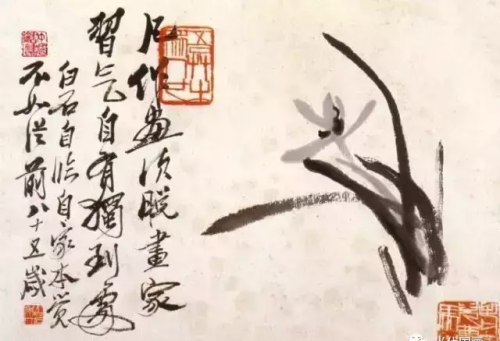 凡作画须脱画家
习气自有独到处
白石自临自家本觉
不如从前八十五岁